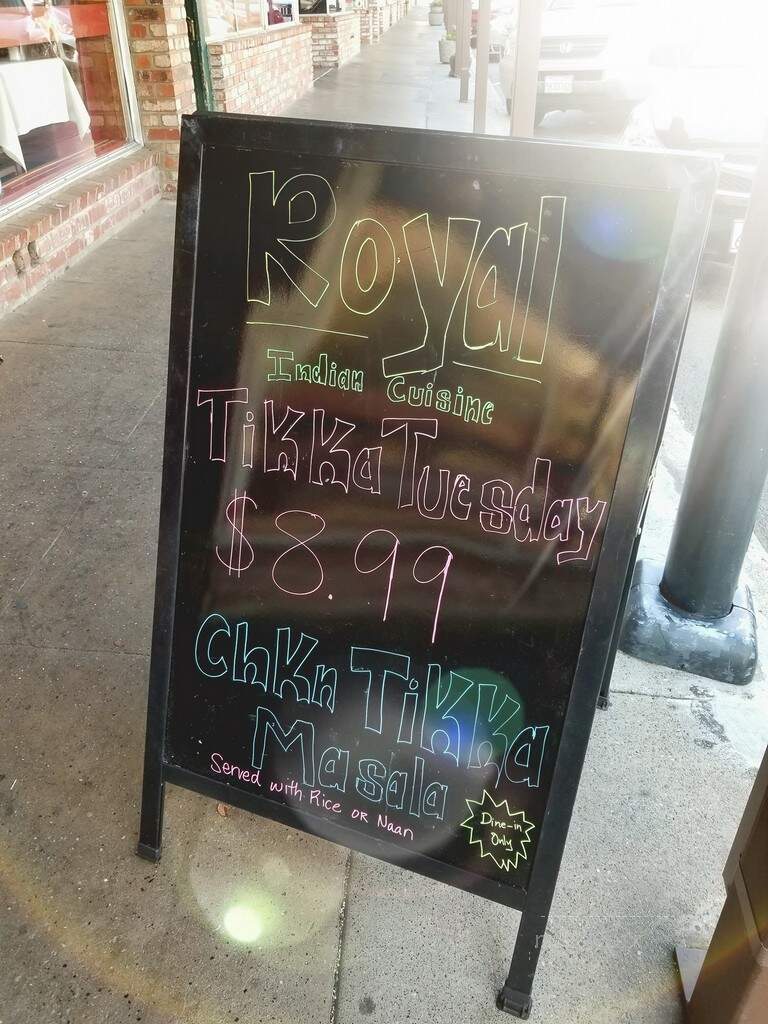 Royal
Indian Cuisine
Tikka Tuesday
$8.99
Chkn Tikka
Masala
Served with Rice OR Naan
Dine-in
Only